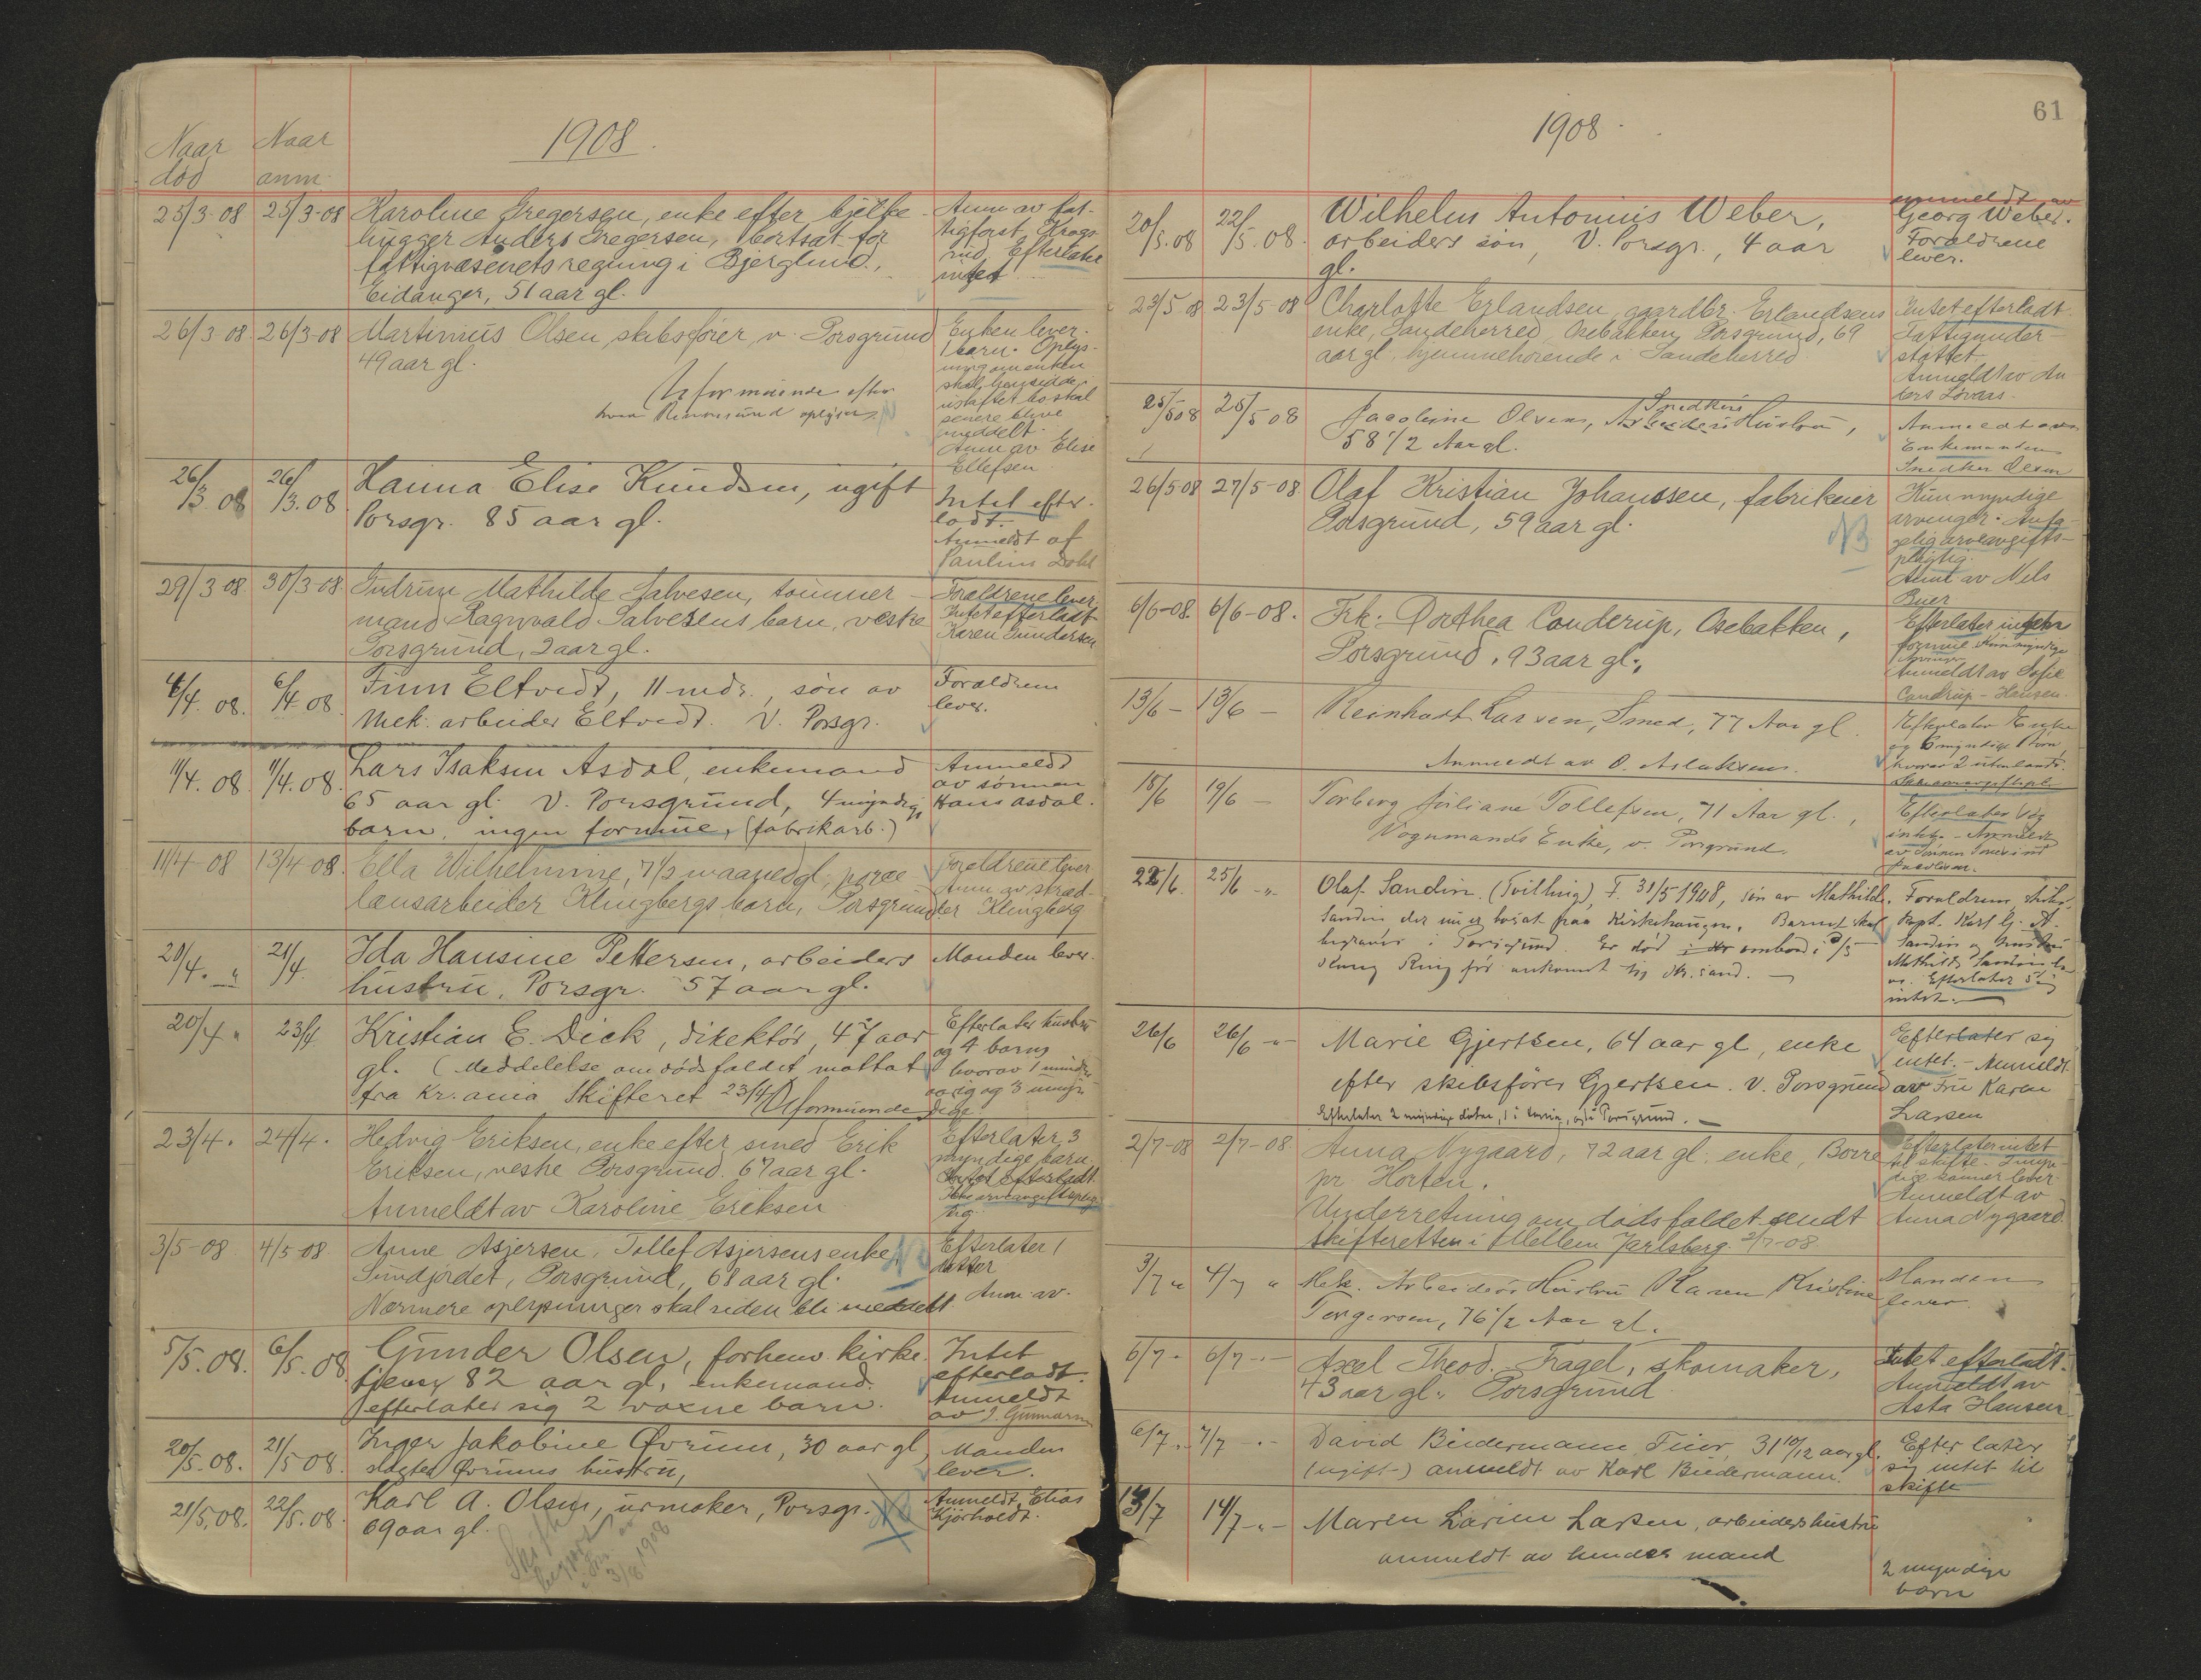 1908
Naar død
Naar anm.
25/3-08 25/3-08 Karoline Gregersen, enke efter bjelke-
hugger Anders Gregersen, bortsat for
fattigvæsenets regning i Bjerglund,
Eidanger, 51 aar gl.
Anm av fat-
tigforst. Krogs-
rud. Efterlater
intet
26/3-08 26/3-08 Martinius Olsen skibsfører, v. Porsgrund
49 aar gl.
Uformuende efter
hvad Rennesund oplyser
Enken lever.
1 barn. Oplys-
ning om enken
skal hensidde i
uskiftet bo skal
senere blive
meddelt.
Anm av Elise
Ellefsen
26/3 08 26/3.08 Hanna Elise Knudsen, ugift
Porsgr. 85 aar gl.
Intet efter-
ladt.
Anmeldt af
Pauline Dahl
29/3 08. 30/3-08. Gudrun Mathilde Salvesen, tømmer-
mand Ragnvald Salvesens barn, vestre
Porsgrund, 2 aar gl.
Forældrene lever.
Intet efterladt
Karen Gundersen
4/4. 08. 6/4 08. Finn Eltvedt, 11 mdr., søn av
mek. arbeider Eltvedt. V. Porsgr.
Forældrene
lever.
11/4. 08 11/4. 08. Lars Isaksen Asdal, enkemand
65 aar gl. V. Porsgrund, 4 myndige
barn, ingen formue, (fabrikarb.)
Anmeldt
av sønnen
Hans Asdal.
11/4-08 13/4-08. Ella Wilhelmine, 7 1/2 maaned gl., porce-
lænsarbeider Klingbergs barn, Porsgrund
Forældrene lever
Anm av
Klingberg
20/4. " 21/4. Ida Hansine Pettersen, arbeiders
hustru, Porsgr. 57 aar gl.
Manden lever.
20/4 " 23/4 Kristian E. Dick, direktør, 47 aar
gl. (Meddelelse om dødsfaldet mottat
fra Kr.ania Skifteret 23/4) Uformuende
Efterlater hustru
og 4 barn
hvorav 1 minder-
aarig og 3 myn-
dige.
23/4. 24/4. Hedvig Eriksen, enke efter smed Erik
Eriksen, vestre Porsgrund. 67 aar gl.
Anmeldt av Karoline Eriksen
Efterlater 3
myndige barn.
Intet efterladt.
Ikke arveavgiftsplig-
tig.
3/5-08 4/5-08. Anne Asjersen, Tollef Asjersens enke,
Sundjordet, Porsgrund, 68 aar gl.
Nærmere oplysninger skal siden bli meddelt.
Efterlater 1
datter
Anm av.
5/5. 08. 6/5. 08 Gunder Olsen, forhenv. kirke-
tjener 82 aar gl, enkemand.
efterlater sig 2 voxne barn.
Intet
efterladt.
Anmeldt
av J. Gunnarsen
20/5. 08. 21/5 08. Inger Jakobine Øvrum, 30 aar gl,
slagter Øvrums hustru,
Manden
lever.
21/5. 08. 22/5. 08. Karl A. Olsen, urmaker, Porsgr.
69 aar gl.
Anmeldt Elias
Kjørholdt.
NB
Skifte
begjært
3/8 1908
61
1908.
20/5.08 22/5.08. Wilhelm Antonius Weber,
arbeiders søn, V. Porsgr., 4 aar
gl.
anmeldt av
Georg Weber.
Forældrene
lever.
23/5 08 23/5-08 Charlotte Erlandsen, gaardbr. Erlandsens
enke, Sandeherred, Osebakken, Porsgrund, 69
aar gl. hjemmehørende i Sandeherred
Intet efterladt
Fattigunder-
støttet.
Anmeldt av An-
ders Løvaas.
25/5 08 26/5 08 Jacobine Olsen, Arbeider Snedkers Hustru,
58 1/2 Aar gl.
Anmeldt av
Enkemanden
Snedker Olsen
26/5 08 27/5-08 Olaf Kristian Johanssen, fabrikeier
Porsgrund, 59 aar gl.
NB
Kun myndige
arvinger. Anta-
gelig arveavgifts-
pligtig.
Anm av Nils
Buer
6/6-08. 6/6-08. Frk. Dorthea Couderup, Osebakken,
Porsgrund. 93 aar gl.,
Efterlater ingen
formue. Kun myndige
arvinger.
Anmeldt av Sofie
Couderup-Hansen.
13/6 - 13/6 - Reinhart Larsen, Smed, 77 Aar gl.
Anmeldt av O. Aslaksen.
Efterlater Enke
og 6 myndige Børn,
hvorav 2 utenlands.
18/6 19/6 - Torberg Juliane Tollefsen, 71 Aar gl.,
Vognmands Enke, v. Porsgrund.
Efterlater sig
intet. - Anmeldt
av Sønnen
22/6. 25/6 -"- Olaf Sandin (Tvilling), F. 31/5 1908, søn av Mathilde
Sandin der nu er bosat paa Kirkehaugen. Barnet skal
begraves i Porsgrund. Er død ombord i
Kong Ring før ankomst til Kr.sand.
Forældrene,
Kapt. Karl G. A.
Sandin og hustru
Mathilde Sandin le-
ver. Efterlater sig
intet.
26/6 26/6 -"- Marie Gjertsen, 64 aar gl, enke
efter skibsfører Gjertsen. V. Porsgrund
Efterlater 2 myndige døtre, 1 i Larvik, og i Porsgrund.
Efterlater sig
intet. - Anmeldt
av Fru Karen
Larsen
2/7-08 2/7-08. Anna Nygaard, 72 aar gl. enke, Borre
pr Horten.
Underretning om dødsfaldet sendt
skifteretten i Mellem Jarlsberg. 2/7-08
Efterlater intet
til skifte. 2 myn-
dige sønner lever.
Anmeldt av
Anna Nygaard.
3/7 " 4/7 " Mek. Arbeiders Hustru Karen Kristine
Torgersen, 76 1/2 Aar gl.
Manden
lever.
6/7. 6/7 -"- Axel Theod. Fragel, skomaker,
43 aar gl. Porsgrund
Intet efterladt.
Anmeldt av
Asta Hansen
6/7. 7/7 -"- David Biedermann Feier, 31 10/12 aar gl.
(ugift) anmeldt av Karl Biedermann.
Efterlater
sig intet til
skifte
13/7 14/7 -"- Maren Larine Larsen, arbeiders hustru
anmeldt av hendes mand
2 myndige
barn